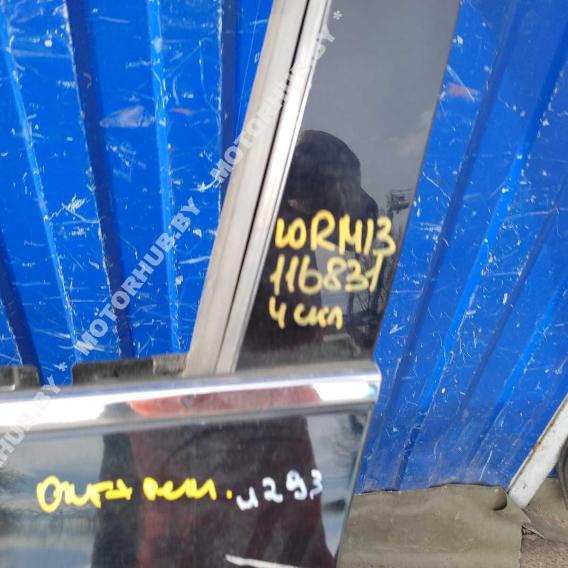 MOTORHUB.BY * MOTORHUB.BY * MOTORHUB.BY *
WRM13
116831
4 скл
и293